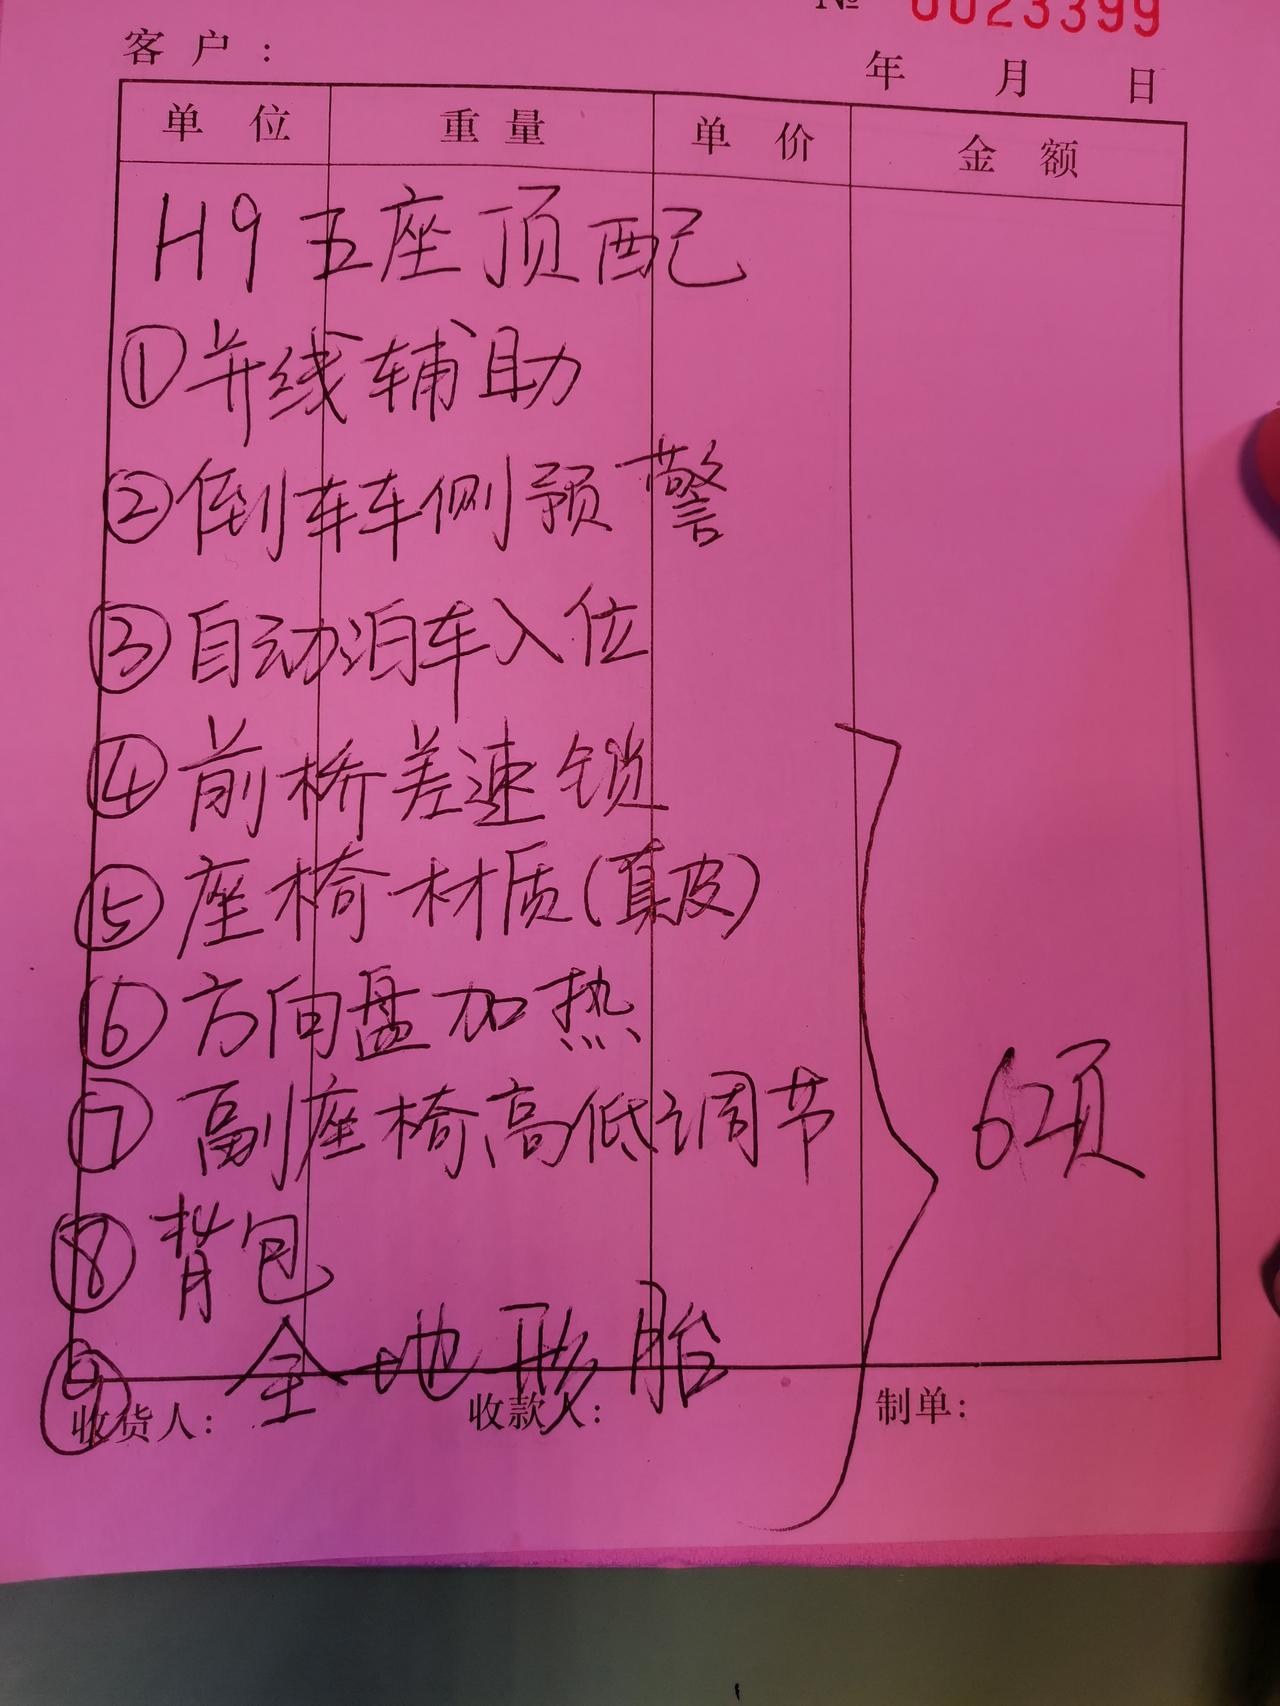 № 0023399
客户：
年 月 日
单位 重量 单价 金额
H9五座顶配
①并线辅助
②倒车车侧预警
③自动泊车入位
④前桥差速锁
⑤座椅材质(真皮)
⑥方向盘加热
⑦副座椅高低调节
6项
⑧背包
⑨全地形胎
收货人： 收款人： 制单：